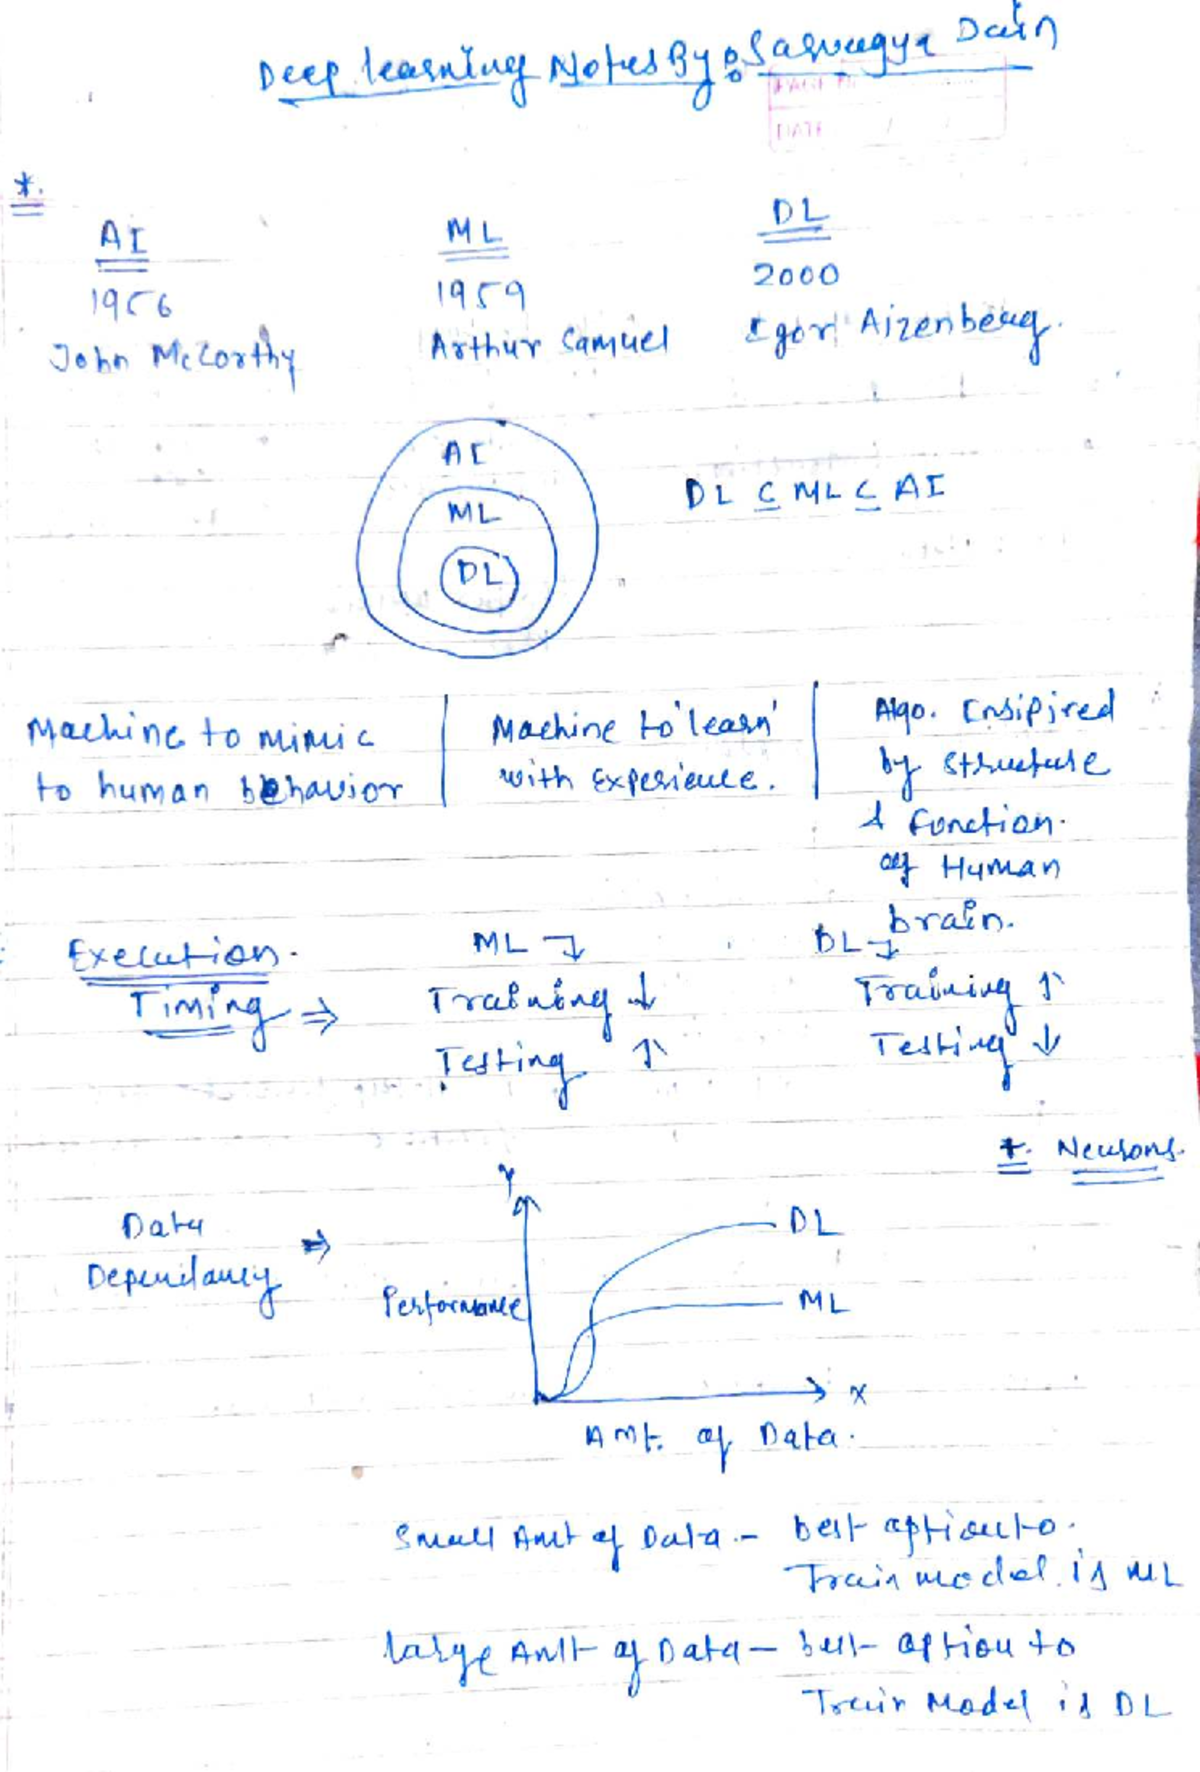 Deep learning Notes By : Sarvagya Jain
PAGE N
DATE
*.
AI ML DL
1956 1959 2000
John McCorthy Arthur Samuel Igor Aizenberg.
AI
ML
DL
DL ⊆ ML ⊆ AI
Machine to mimic
to human behavior
Machine to 'learn'
with Experience.
Algo. Insipired
by structure
& function.
of Human
brain.
Execution.
Timing ⇒
ML ↴
Training ↓
Testing ↑
DL ↴
Training ↑
Testing ↓
*. Neurons.
Data
Dependancy ⇒
Y
Performance
DL
ML
X
Amt. of Data.
Small Amt of Data - best option to.
Train model is ML
large Amt of Data - best option to
Train Model is DL